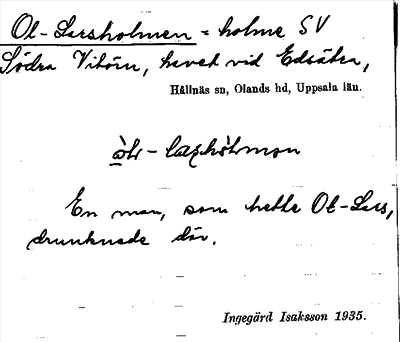 Ol-Larsholmen = holme SV
Södra Vitörn, havet vid Edsätra,
Hållnäs sn, Olands hd, Uppsala län.
En man, som hette Ol-Lars,
drunknade där.
Ingegärd Isaksson 1935.